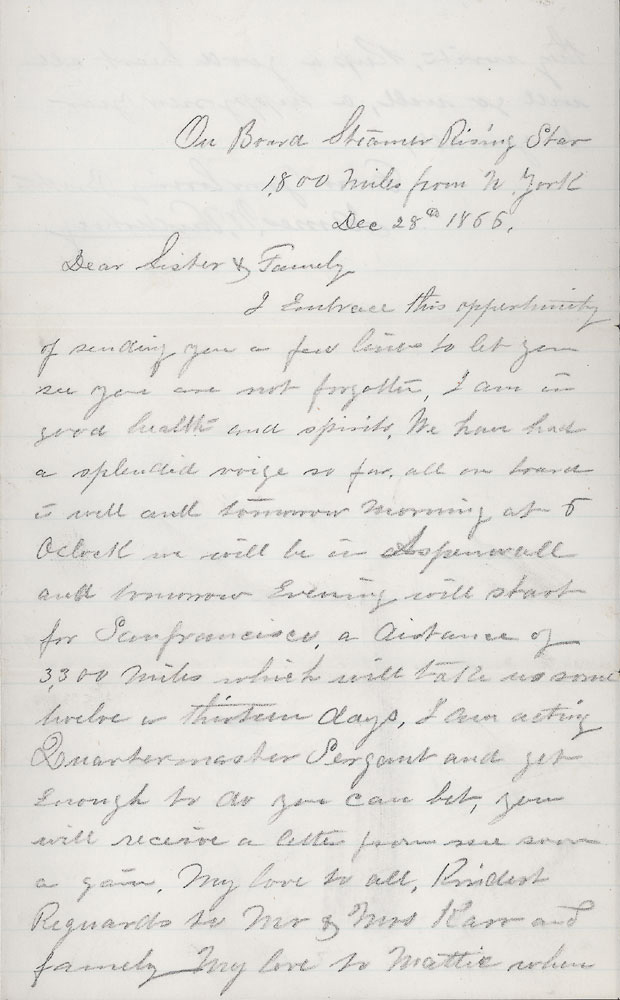 On Board Steamer Rising Star
1,800 Miles from N York
Dec 28th 1866.
Dear Sister & Famely
I Embrace this oppertunity
of sending you a few lines to let you
see you are not forgotten, I am in
good health and spirits. We have had
a splendid voige so far. all on board
is well and tomorrow Morning at 5
Oclock we will be in Aspenwall
and tomorrow Evening will start
for Sanfrancisco, a distance of
3,300 Miles which will take us some
twelve or thirteen days, I am acting
Quartermaster Sergant and get
Enough to do you can bet, you
will receive a letter from me soon
a gain. My love to all, Kindest
Reguards to Mr & Mrs Karr and
famely My love to Mattie when